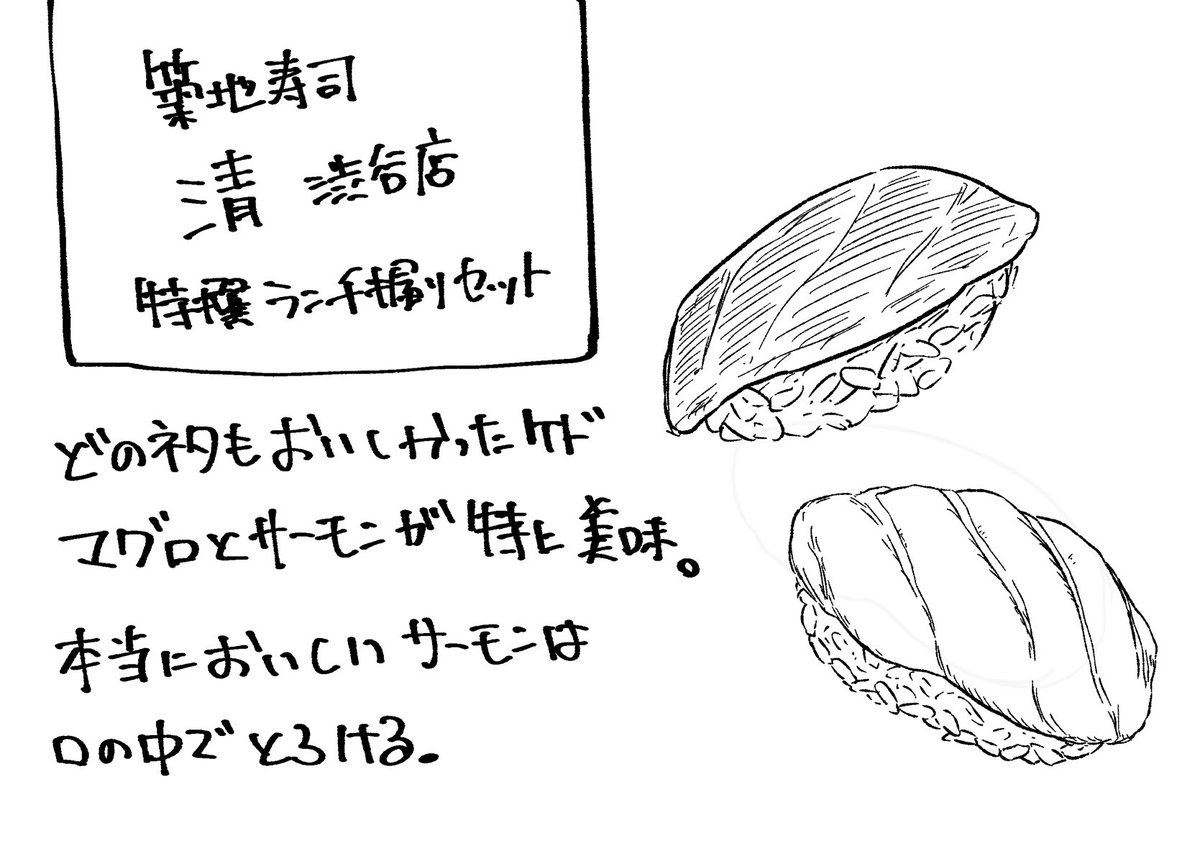 築地寿司
清 渋谷店
特撰ランチ握りセット
どのネタもおいしかったケド
マグロとサーモンが特に美味。
本当においしいサーモンは
口の中でとろける。